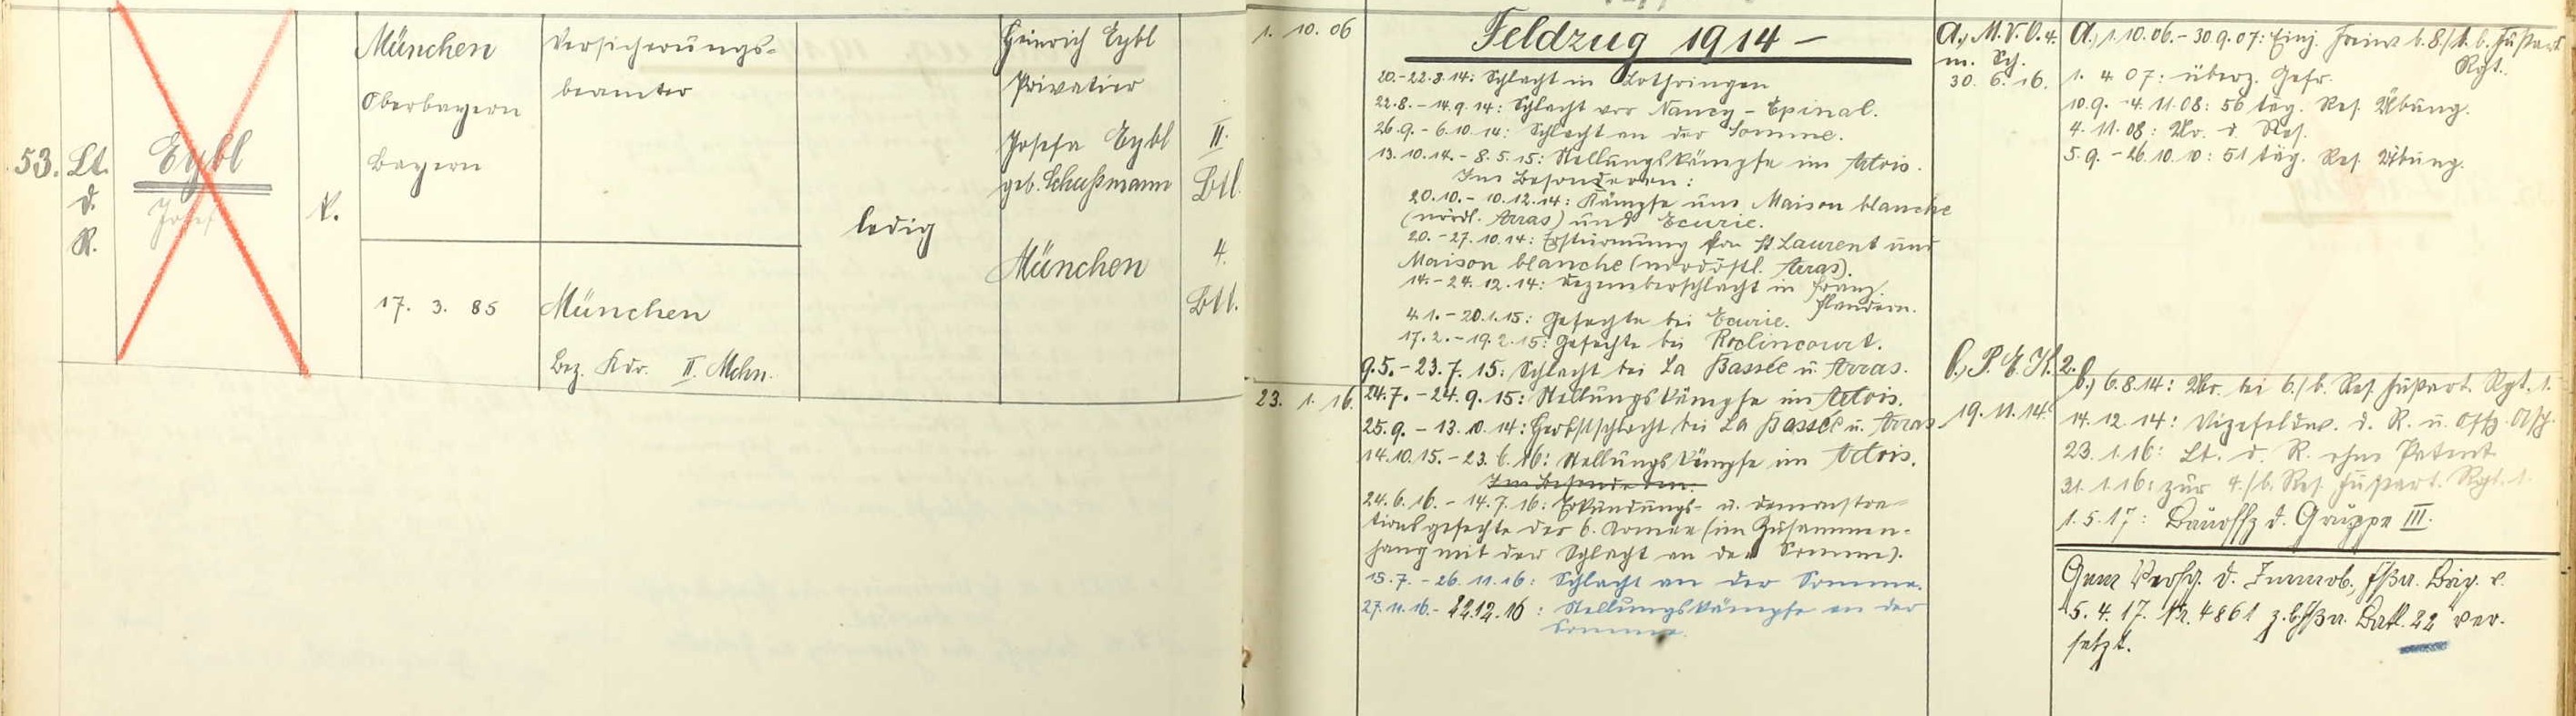 53.
Lt.
d.
R.
Eybl
Josef
k.
München
Oberbayern
Bayern
17. 3. 85
Versicherungs-
beamter
München
Bez. Kdo. II. Mchn.
ledig
Heinrich Eybl
Privatier
Josefa Eybl
geb. Schußmann
München
II.
Btl.
4.
Btt.
1. 10. 06
23. 1. 16.
Feldzug 1914 –
20.-22.8.14: Schlacht in Lothringen
22.8.-14.9.14: Schlacht vor Nancy-Epinal.
26.9.-6.10.14: Schlacht an der Somme.
13.10.14.-8.5.15: Stellungskämpfe im Artois.
Im Besonderen:
20.10.-10.12.14: Kämpfe um Maison blanche
(nördl. Arras) und Ecurie.
20.-27.10.14: Erstürmung von St. Laurent und
Maison blanche (nordöstl. Arras).
14.-24.12.14: Dezemberschlacht in franz.
Flandern.
4.1.-20.1.15: Gefechte bei Ecurie.
17.2.-19.2.15: Gefechte bei Roclincourt.
9.5.-23.7.15: Schlacht bei La Bassée u. Arras.
24.7.-24.9.15: Stellungskämpfe im Artois.
25.9.-13.10.14: Herbstschlacht bei La Bassée u. Arras
14.10.15.-23.6.16: Stellungskämpfe im Artois.
Im Besonderen:
24.6.16.-14.7.16: Erkundungs- u. Demonstra-
tionsgefechte der 6. Armee (im Zusammen-
hang mit der Schlacht an der Somme).
15.7.-26.11.16: Schlacht an der Somme.
27.11.16.-22.12.16: Stellungskämpfe an der
Somme.
a., M.V.O.4.
m. Sch.
30. 6. 16.
b., P.E.K.2.
19. 11. 14.
a., 1.10.06.-30.9.07: Einj. Freiw. b. 8./1. b. Fußart.
Rgt.
1. 4. 07: überz. Gefr.
10.9.-4.11.08: 56 täg. Res. Übung.
4. 11. 08: Uo. d. Res.
5.9.-26.10.10: 51 täg. Res. Übung.
b., 6.8.14: Uo. bei 6./b. Res. Fußart. Rgt. 1.
14.12.14: Vizefeldw. d. R. u. Offz. Asp.
23. 1. 16: Lt. d. R. ohne Patent
31. 1. 16: zur 4./b. Res. Fußart. Rgt. 1.
1. 5. 17: Bauoffz d. Gruppe III.
Gem. Verfg. d. Immob. Fßa. Brig. v.
5. 4. 17. Nr. 4861 z. b. Fßa. Batl. 22 ver-
setzt.